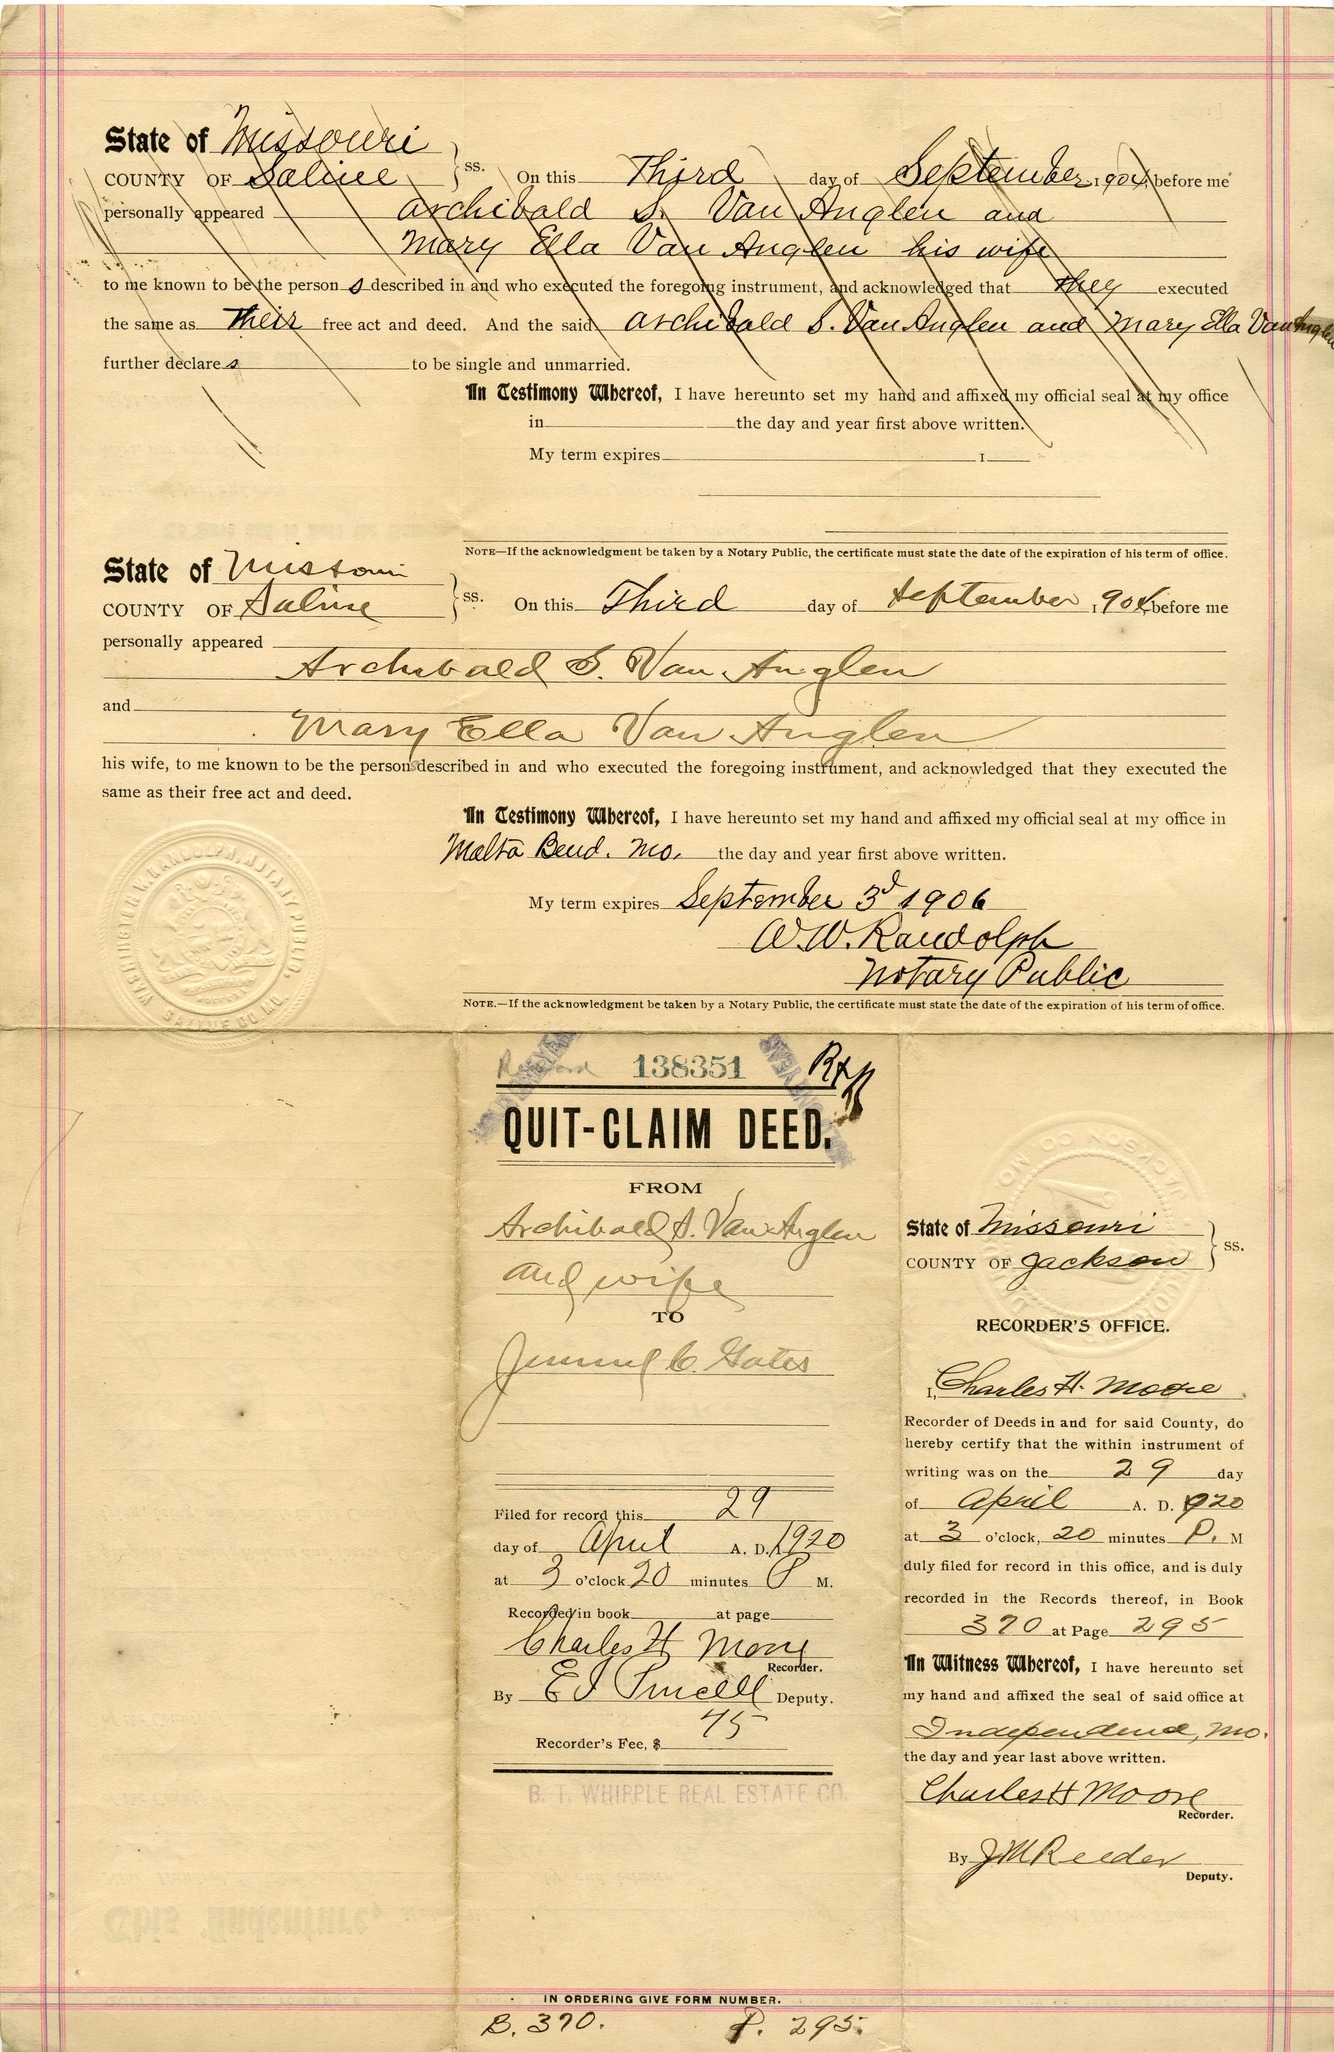 State of Missouri
COUNTY OF Saline } ss. On this Third day of September 1904, before me
personally appeared Archibald S. Van Anglen and
Mary Ella Van Anglen his wife
to me known to be the person s described in and who executed the foregoing instrument, and acknowledged that they executed
the same as their free act and deed. And the said Archibald S. Van Anglen and Mary Ella Van Anglen
further declare s to be single and unmarried.
In Testimony Whereof, I have hereunto set my hand and affixed my official seal at my office
in the day and year first above written.
My term expires 1
NOTE—If the acknowledgment be taken by a Notary Public, the certificate must state the date of the expiration of his term of office.
State of Missouri
COUNTY OF Saline } ss. On this Third day of September 1904, before me
personally appeared
Archibald S. Van Anglen
and
Mary Ella Van Anglen
his wife, to me known to be the persons described in and who executed the foregoing instrument, and acknowledged that they executed the
same as their free act and deed.
In Testimony Whereof, I have hereunto set my hand and affixed my official seal at my office in
Malta Bend. Mo. the day and year first above written.
My term expires September 3d 1906
W. W. Randolph
Notary Public
NOTE.—If the acknowledgment be taken by a Notary Public, the certificate must state the date of the expiration of his term of office.
WASHINGTON W. RANDOLPH, NOTARY PUBLIC,
SALINE CO. MO.
138351
QUIT-CLAIM DEED.
FROM
Archibald S. Van Anglen
and wife
TO
C. Gates
Filed for record this 29
day of April A. D. 1920
at 3 o'clock 20 minutes P M.
Recorded in book at page
Charles H Moore
Recorder.
By E J Purcell Deputy.
Recorder's Fee, $ 75
B. T. WHIPPLE REAL ESTATE CO.
State of Missouri
COUNTY OF Jackson } ss.
RECORDER'S OFFICE.
I, Charles H. Moore
Recorder of Deeds in and for said County, do
hereby certify that the within instrument of
writing was on the 29 day
of April A. D. 1920
at 3 o'clock, 20 minutes P. M
duly filed for record in this office, and is duly
recorded in the Records thereof, in Book
370 at Page 295
In Witness Whereof, I have hereunto set
my hand and affixed the seal of said office at
Independence, Mo.
the day and year last above written.
Charles H Moore
Recorder.
By J M Reeder
Deputy.
IN ORDERING GIVE FORM NUMBER.
B. 370. P. 295.